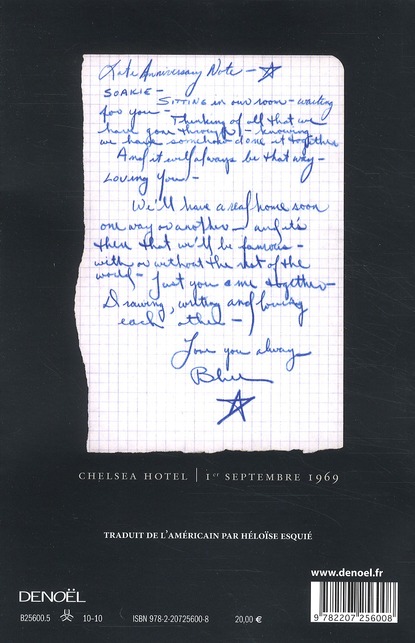 Late Anniversary Note - ☆
SOAKIE -
SITTING in our room - waiting
for you -
Thinking of all that we
have gone through - knowing
we have somehow done it together
And it will always be that way -
LOVING you -
We'll have a real home soon
one way or another - and it's
there that we'll be famous -
with or without the rest of the
world - Just you & me together -
Drawing, writing and loving
each other -
Love you always
Blue
☆
CHELSEA HOTEL | 1er SEPTEMBRE 1969
TRADUIT DE L'AMÉRICAIN PAR HÉLOÏSE ESQUIÉ
www.denoel.fr
DENOËL
B25600.5 10-10 ISBN 978-2-20725600-8 20,00 €
9 782207 256008